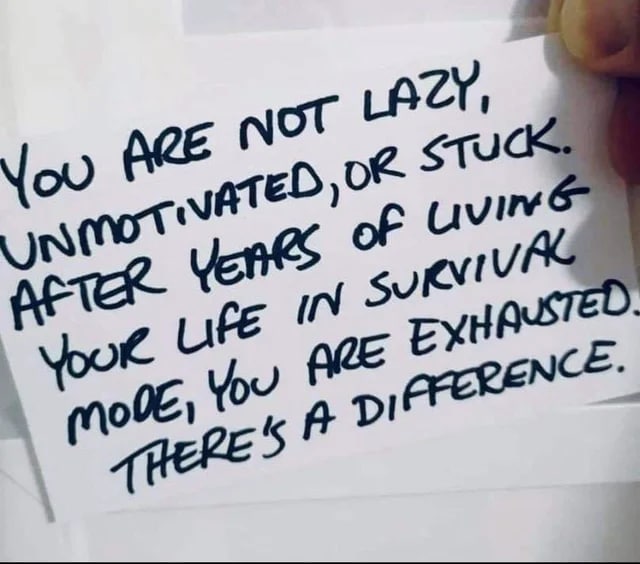 YOU ARE NOT LAZY,
UNMOTIVATED, OR STUCK.
AFTER YEARS OF LIVING
YOUR LIFE IN SURVIVAL
MODE, YOU ARE EXHAUSTED.
THERE'S A DIFFERENCE.